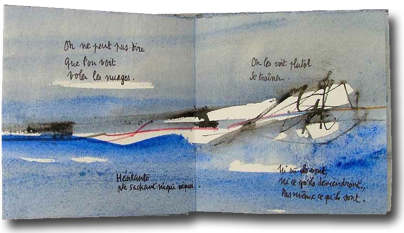 On ne peut pas dire
Que l'on voit
voler les nuages.
On les voit plutôt
se traîner.
Hésitants
Ne sachant ni qui
Ni où ils vont
ni ce qu'ils deviendront,
Pas même ce qu'ils sont.